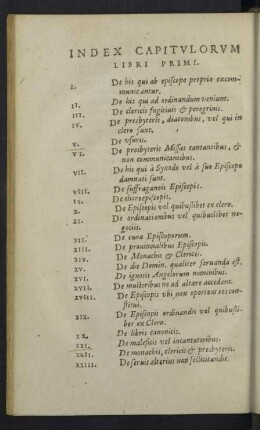 INDEX CAPITVLORVM
LIBRI PRIMI.
I. De his qui ab episcopo proprio excom-
municantur.
II. De his qui ad ordinandum veniunt.
III. De clericis fugitiuis & peregrinis.
IV. De presbyteris, diaconibus, vel qui in
clero sunt.
V. De vsuris.
VI. De presbyteris Missas cantantibus, &
non communicantibus.
VII. De his qui à Synodo vel à suo Episcopo
damnati sunt.
VIII. De suffraganeis Episcopis.
IX. De chorepiscopis.
X. De Episcopis vel quibuslibet ex clero.
XI. De ordinationibus vel quibuslibet ne-
gociis.
XII. De cura Episcoporum.
XIII. De prouincialibus Episcopis.
XIV. De Monachis & Clericis.
XV. De die Domin. qualiter seruanda est.
XVI. De ignotis Angelorum nominibus.
XVII. De mulieribus ne ad altare accedant.
XVIII. De Episcopis vbi non oporteat eos con-
stitui.
XIX. De Episcopis ordinandis vel quibusli-
bet ex Clero.
XX. De libris canonicis.
XXI. De maleficis vel incantatoribus.
XXII. De monachis, clericis & presbyteris.
XXIII. De seruis alterius non sollicitandis.